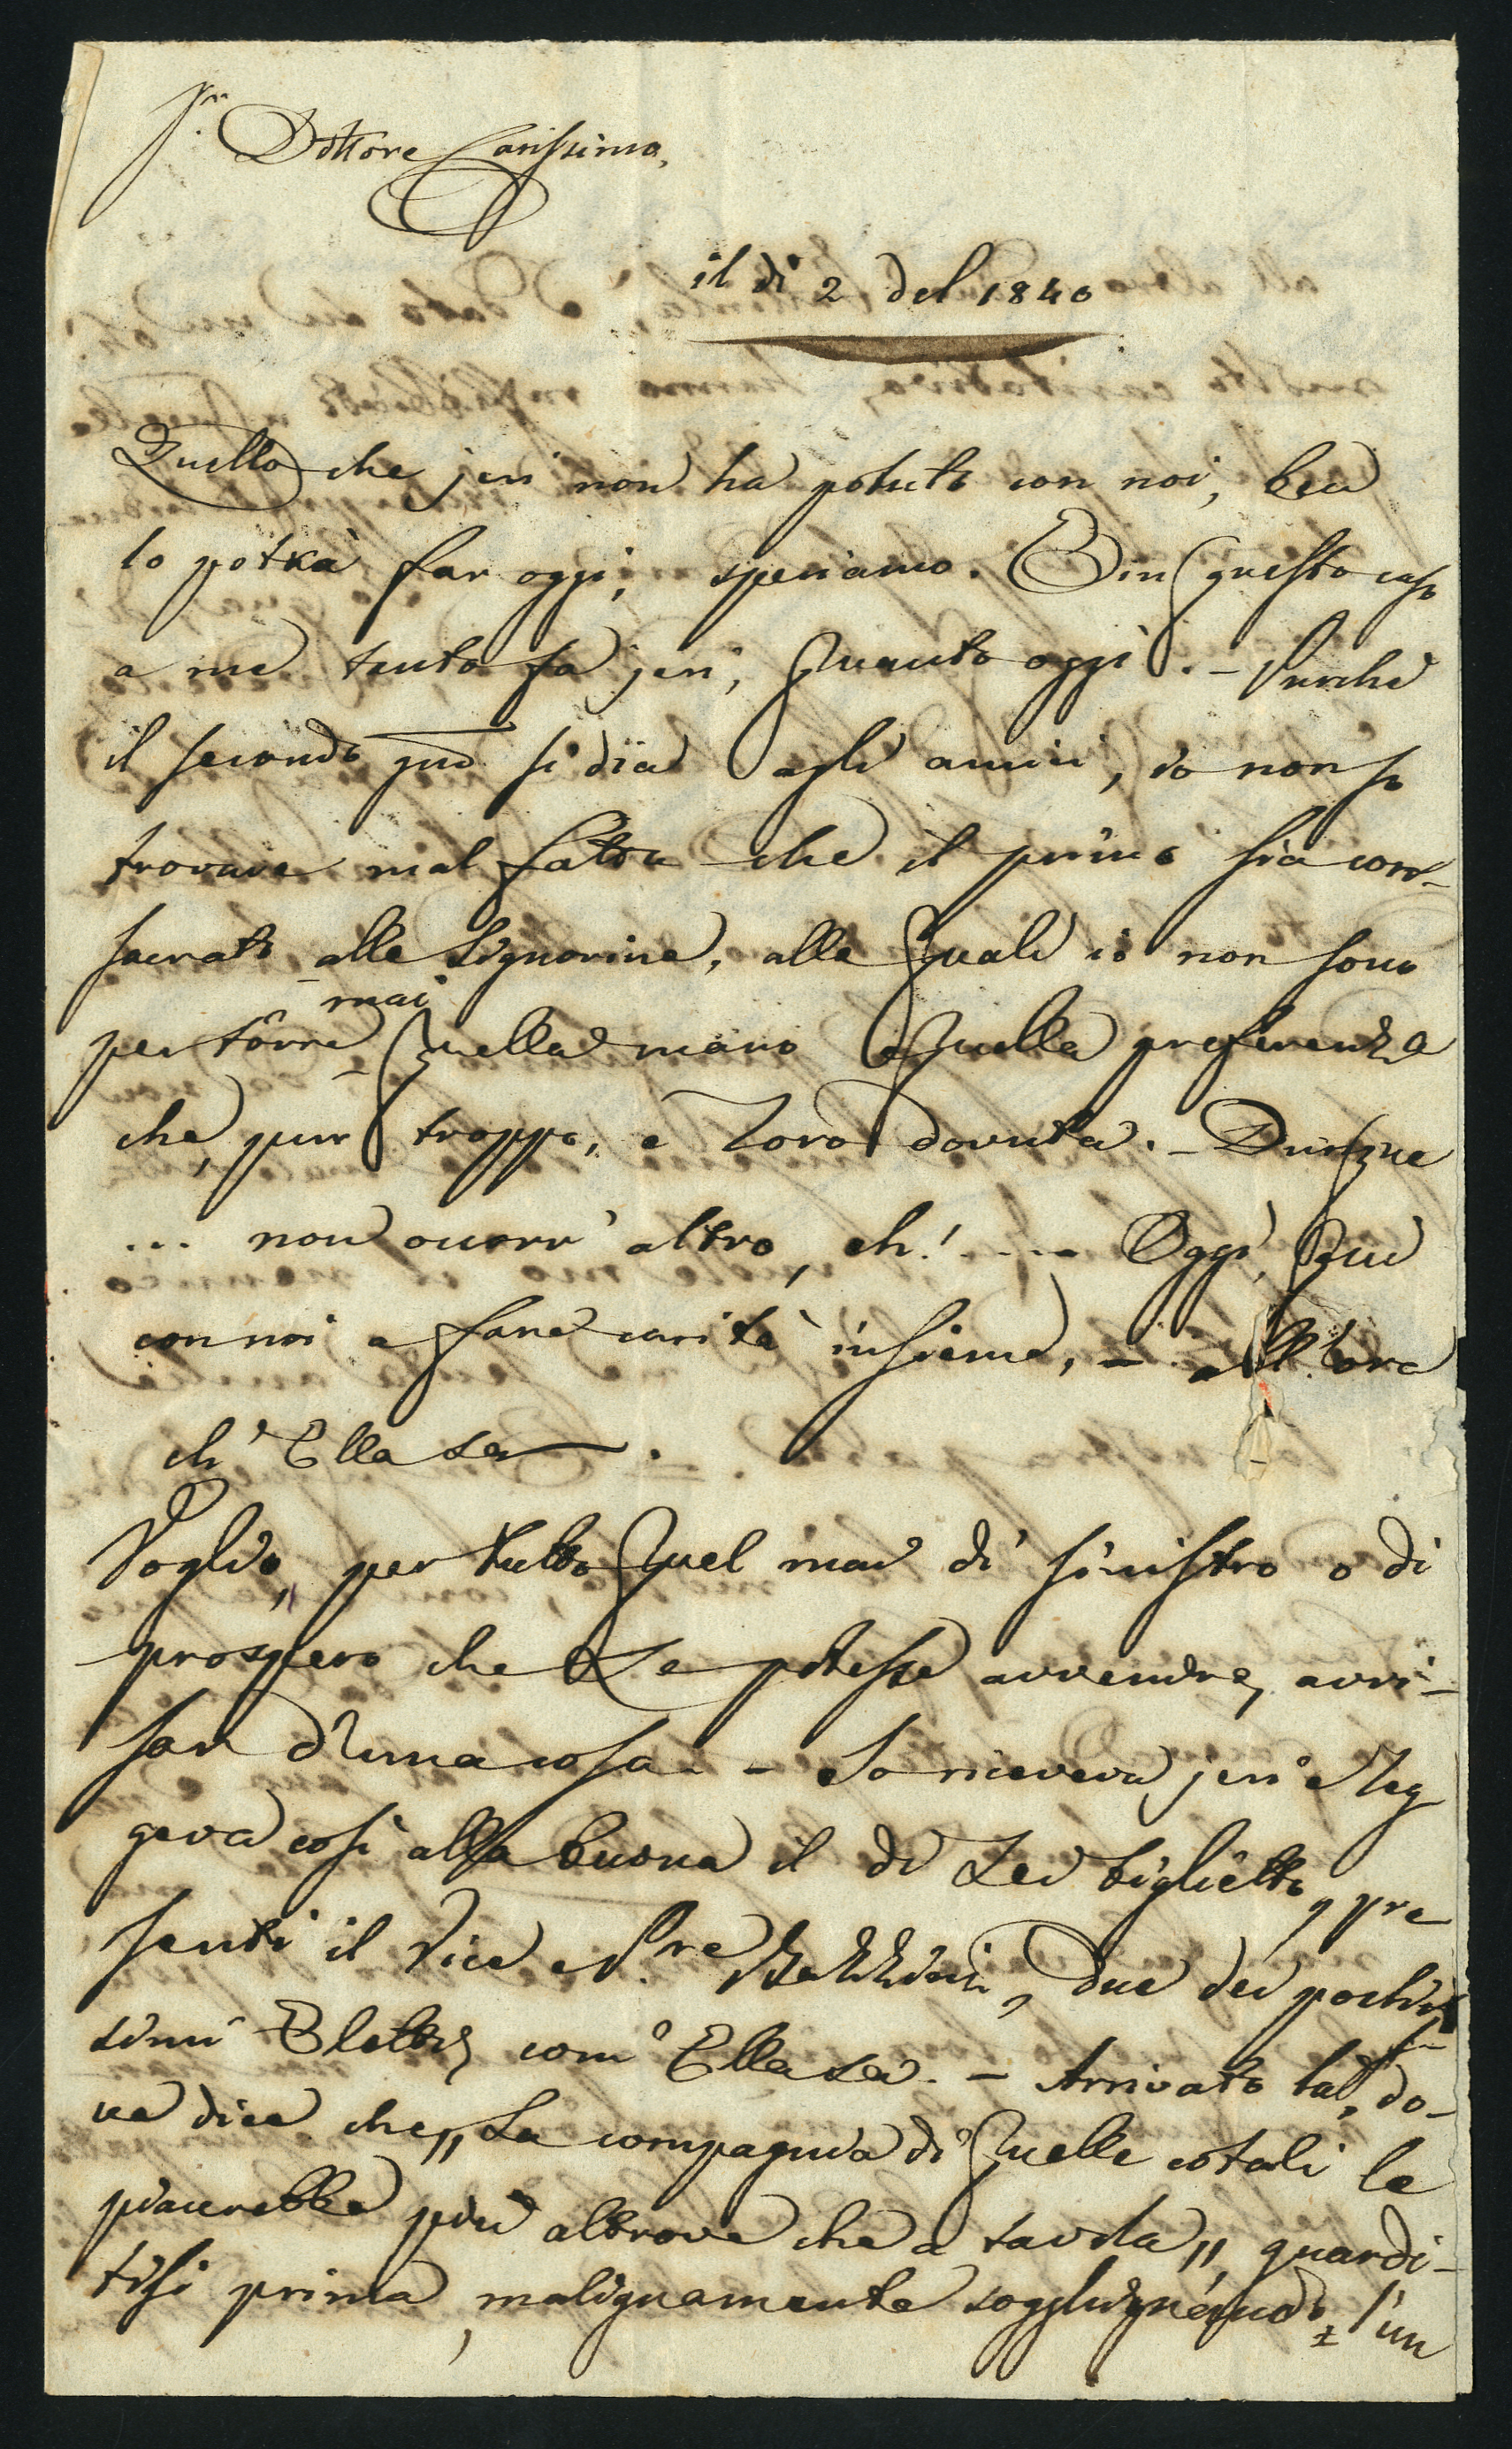 Sr. Dottore Carissimo,
il di 2 del 1840
Quello che jeri non ha potuto con noi, ben
lo potrà far oggi, speriamo. E in questo caso
a me tanto fa jeri, quanto oggi. - Purchè
il secondo si dia agli amici, io non so
trovare mal fatto che il primo sia con-
sacrato alle Signorine, alle quali io non sono
per tôrre mai quella mano e quella preferenza
che, pur troppo, è loro dovuta. - Dunque
... non occorr' altro, eh! .... Oggi, qui
con noi a fare carità insieme, - all'ora
ch' Ella sa.
Voglio, per tutto quel mai di sinistro o di
prospero che Le potesse avvenire, avvi-
sar d'una cosa. - Io riceveva jeri e leg
geva così alla buona il di Lei biglietto, pre
senti il Vice e Pre due dei pochis
simi Eletti, com' Ella sa. - Arrivato là, do-
ve dice che „La compagnia di quelle cotali le
piacerebbe più altrove che a tavola„, guardi-
tisi prima, malignamente sogghignando, l'un